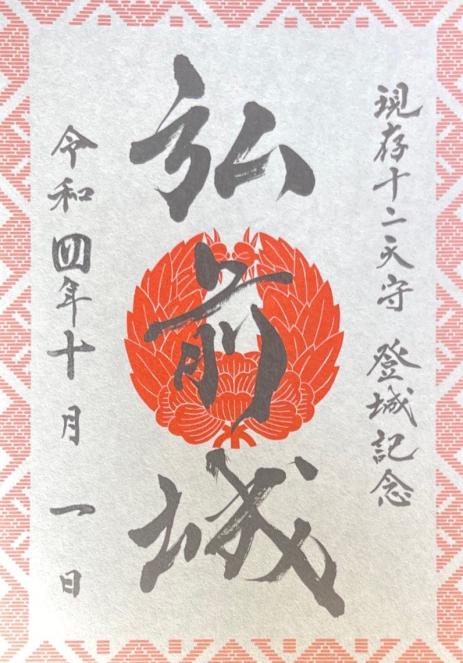 現存十二天守 登城記念
弘前城
令和四年十月一日